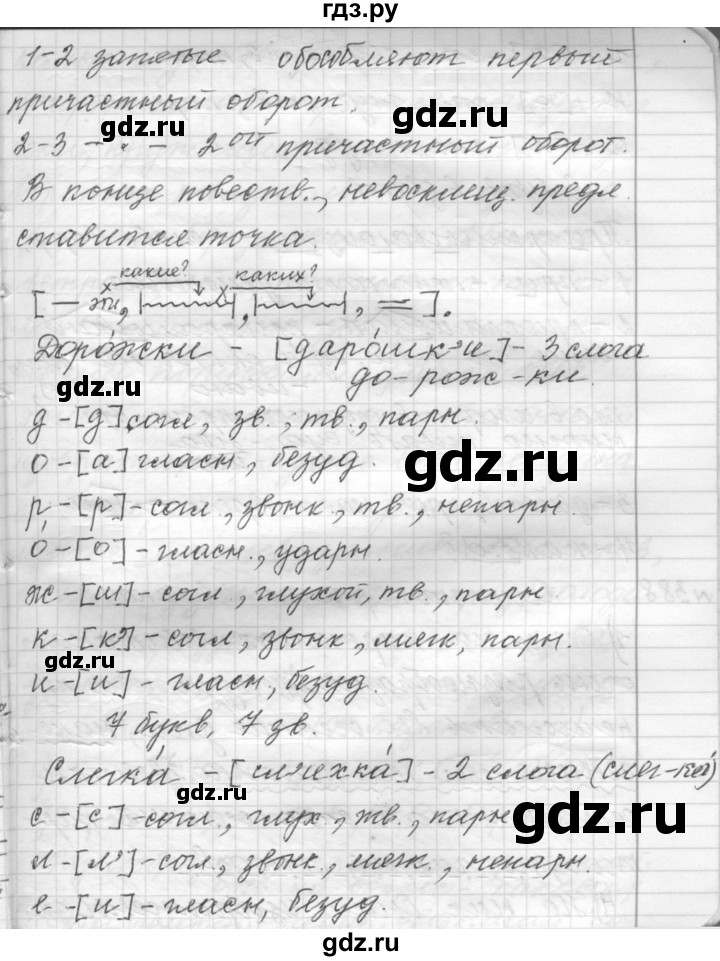 гдз.ру
1-2 запятые обособляют первый
причастный оборот,
gdz.ru
gdz.ru
2-3 —"— 2ой причастный оборот.
В конце повеств., невосклиц. предл.
ставится точка.
какие? каких?
[— эти, |~~~|, |~~~|, =].
Доро́жки - [даро́шк'и] - 3 слога
gdz.ru
до-рож-ки.
д - [д] согл, зв., тв., парн.
о - [а] гласн, безуд.
gdz.ru
р - [р] - согл., звонк., тв., непарн.
о́ - [о] - гласн., ударн.
ж - [ш] - согл., глухой, тв., парн
к - [к'] - согл, звонк, мягк, парн.
gdz.ru
и - [и] - гласн, безуд.
7 букв, 7 зв.
Слегка́ - [сл'ихка́] - 2 слога (слег-ка́)
gdz.ru
с - [с] - согл., глух, тв., парн
gdz.ru
л - [л'] - согл., звонк., мягк., непарн.
е - [и] - гласн, безуд.
gdz.ru